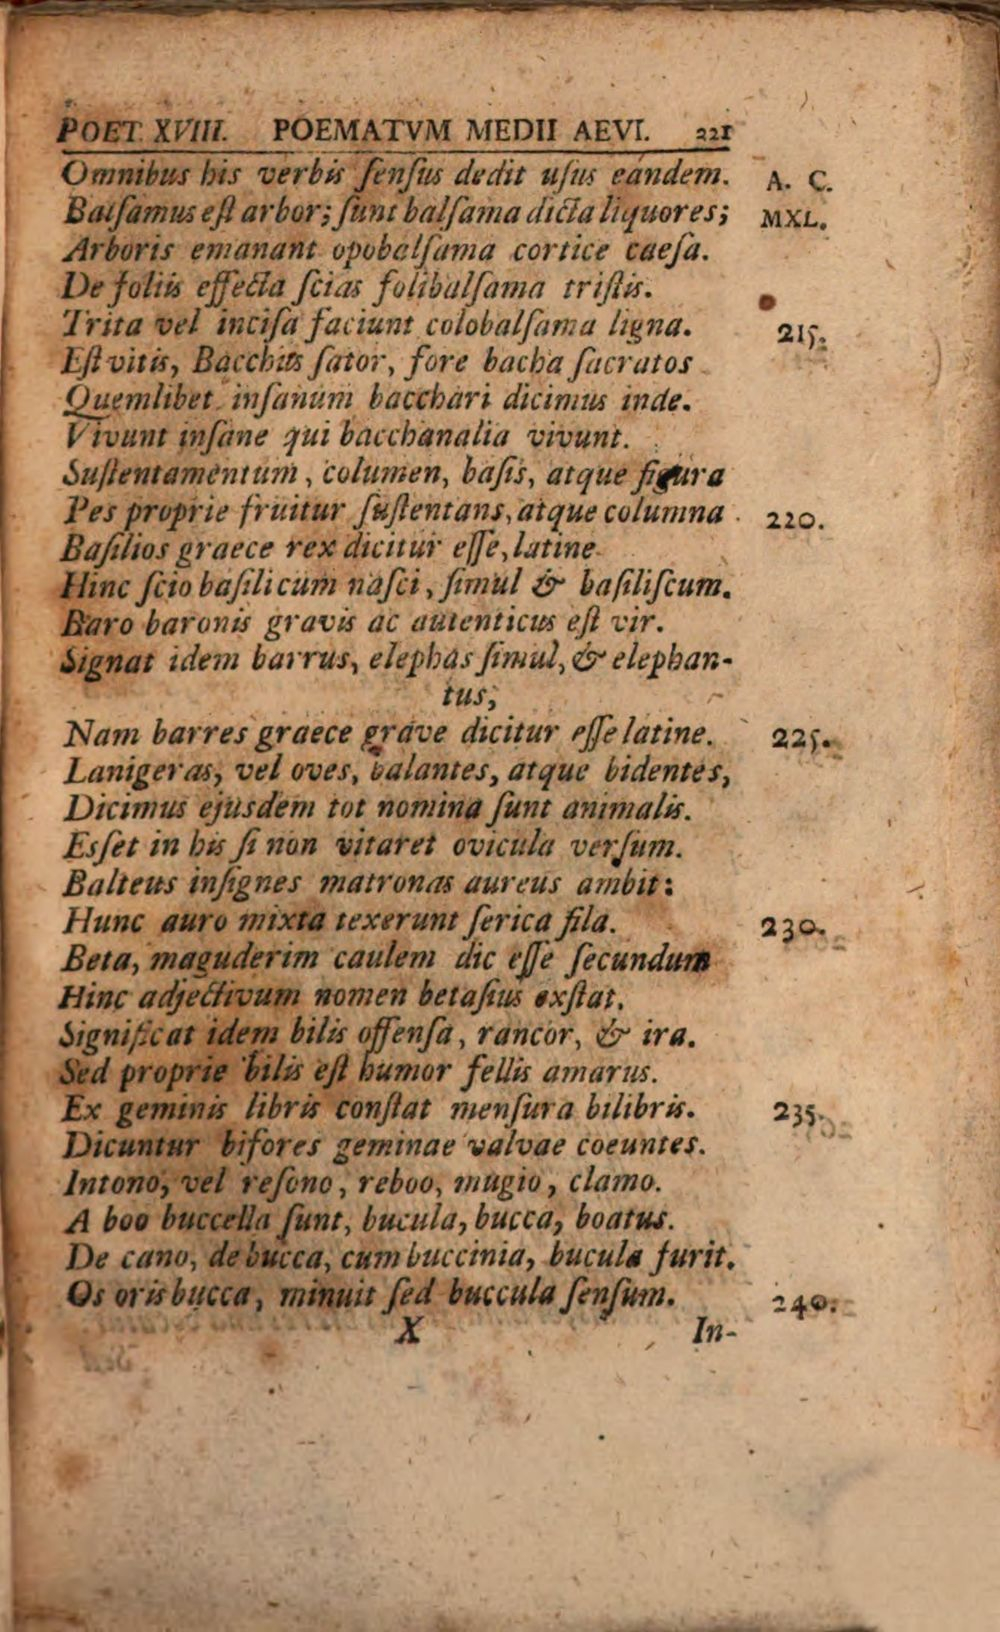 POET. XVIII. POEMATVM MEDII AEVI. 221
Omnibus his verbis ſenſus dedit uſus eandem. A. C.
Balſamus eſt arbor; ſunt balſama dicta liquores; MXL.
Arboris emanant opobalſama cortice caeſa.
De foliis effecta ſcias folibalſama triſtis.
Trita vel inciſa faciunt colobalſama ligna. 215.
Eſt vitis, Bacchus ſator, fore bacha ſacratos
Quemlibet inſanum bacchari dicimus inde.
Vivunt inſane qui bacchanalia vivunt.
Suſtentamentum, columen, baſis, atque figura
Pes proprie fruitur ſuſtentans, atque columna. 220.
Baſilios graece rex dicitur eſſe, latine
Hinc ſcio baſilicum naſci, ſimul & baſiliſcum.
Baro baronis gravis ac autenticus eſt vir.
Signat idem barrus, elephas ſimul, & elephan-
tus,
Nam barres graece grave dicitur eſſe latine. 225.
Lanigeras, vel oves, balantes, atque bidentes,
Dicimus ejusdem tot nomina ſunt animalis.
Esſet in his ſi non vitaret ovicula verſum.
Balteus inſignes matronas aureus ambit:
Hunc auro mixta texerunt ſerica fila. 230.
Beta, maguderim caulem dic eſſe ſecundum
Hinc adjectivum nomen betaſius exſtat.
Significat idem bilis offenſa, rancor, & ira.
Sed proprie bilis eſt humor fellis amarus.
Ex geminis libris conſtat menſura bilibris. 235.
Dicuntur bifores geminae valvae coeuntes.
Intono, vel reſono, reboo, mugio, clamo.
A boo buccella ſunt, bucula, bucca, boatus.
De cano, de bucca, cum buccinia, bucula furit.
Os oris bucca, minuit ſed buccula ſenſum. 240.
X In-